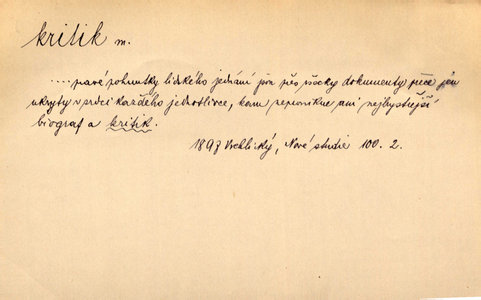 kritik m.
.... pravé pohnutky lidského jednání jsou přes všecky dokumenty přece jen
ukryty v srdci každého jednotlivce, kam nepronikne ani nejbystřejší
biograf a kritik.
1897 Vrchlický, Nové studie 100. 2.